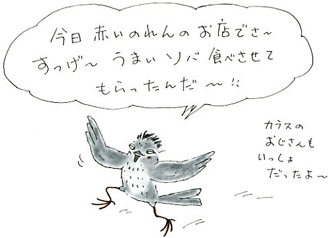 今日 赤いのれんの お店でさ〜
すっげ〜 うまい ソバ 食べさせて
もらったんだ 〜!!
カラスの
おじさんも
いっしょ
だったよ〜